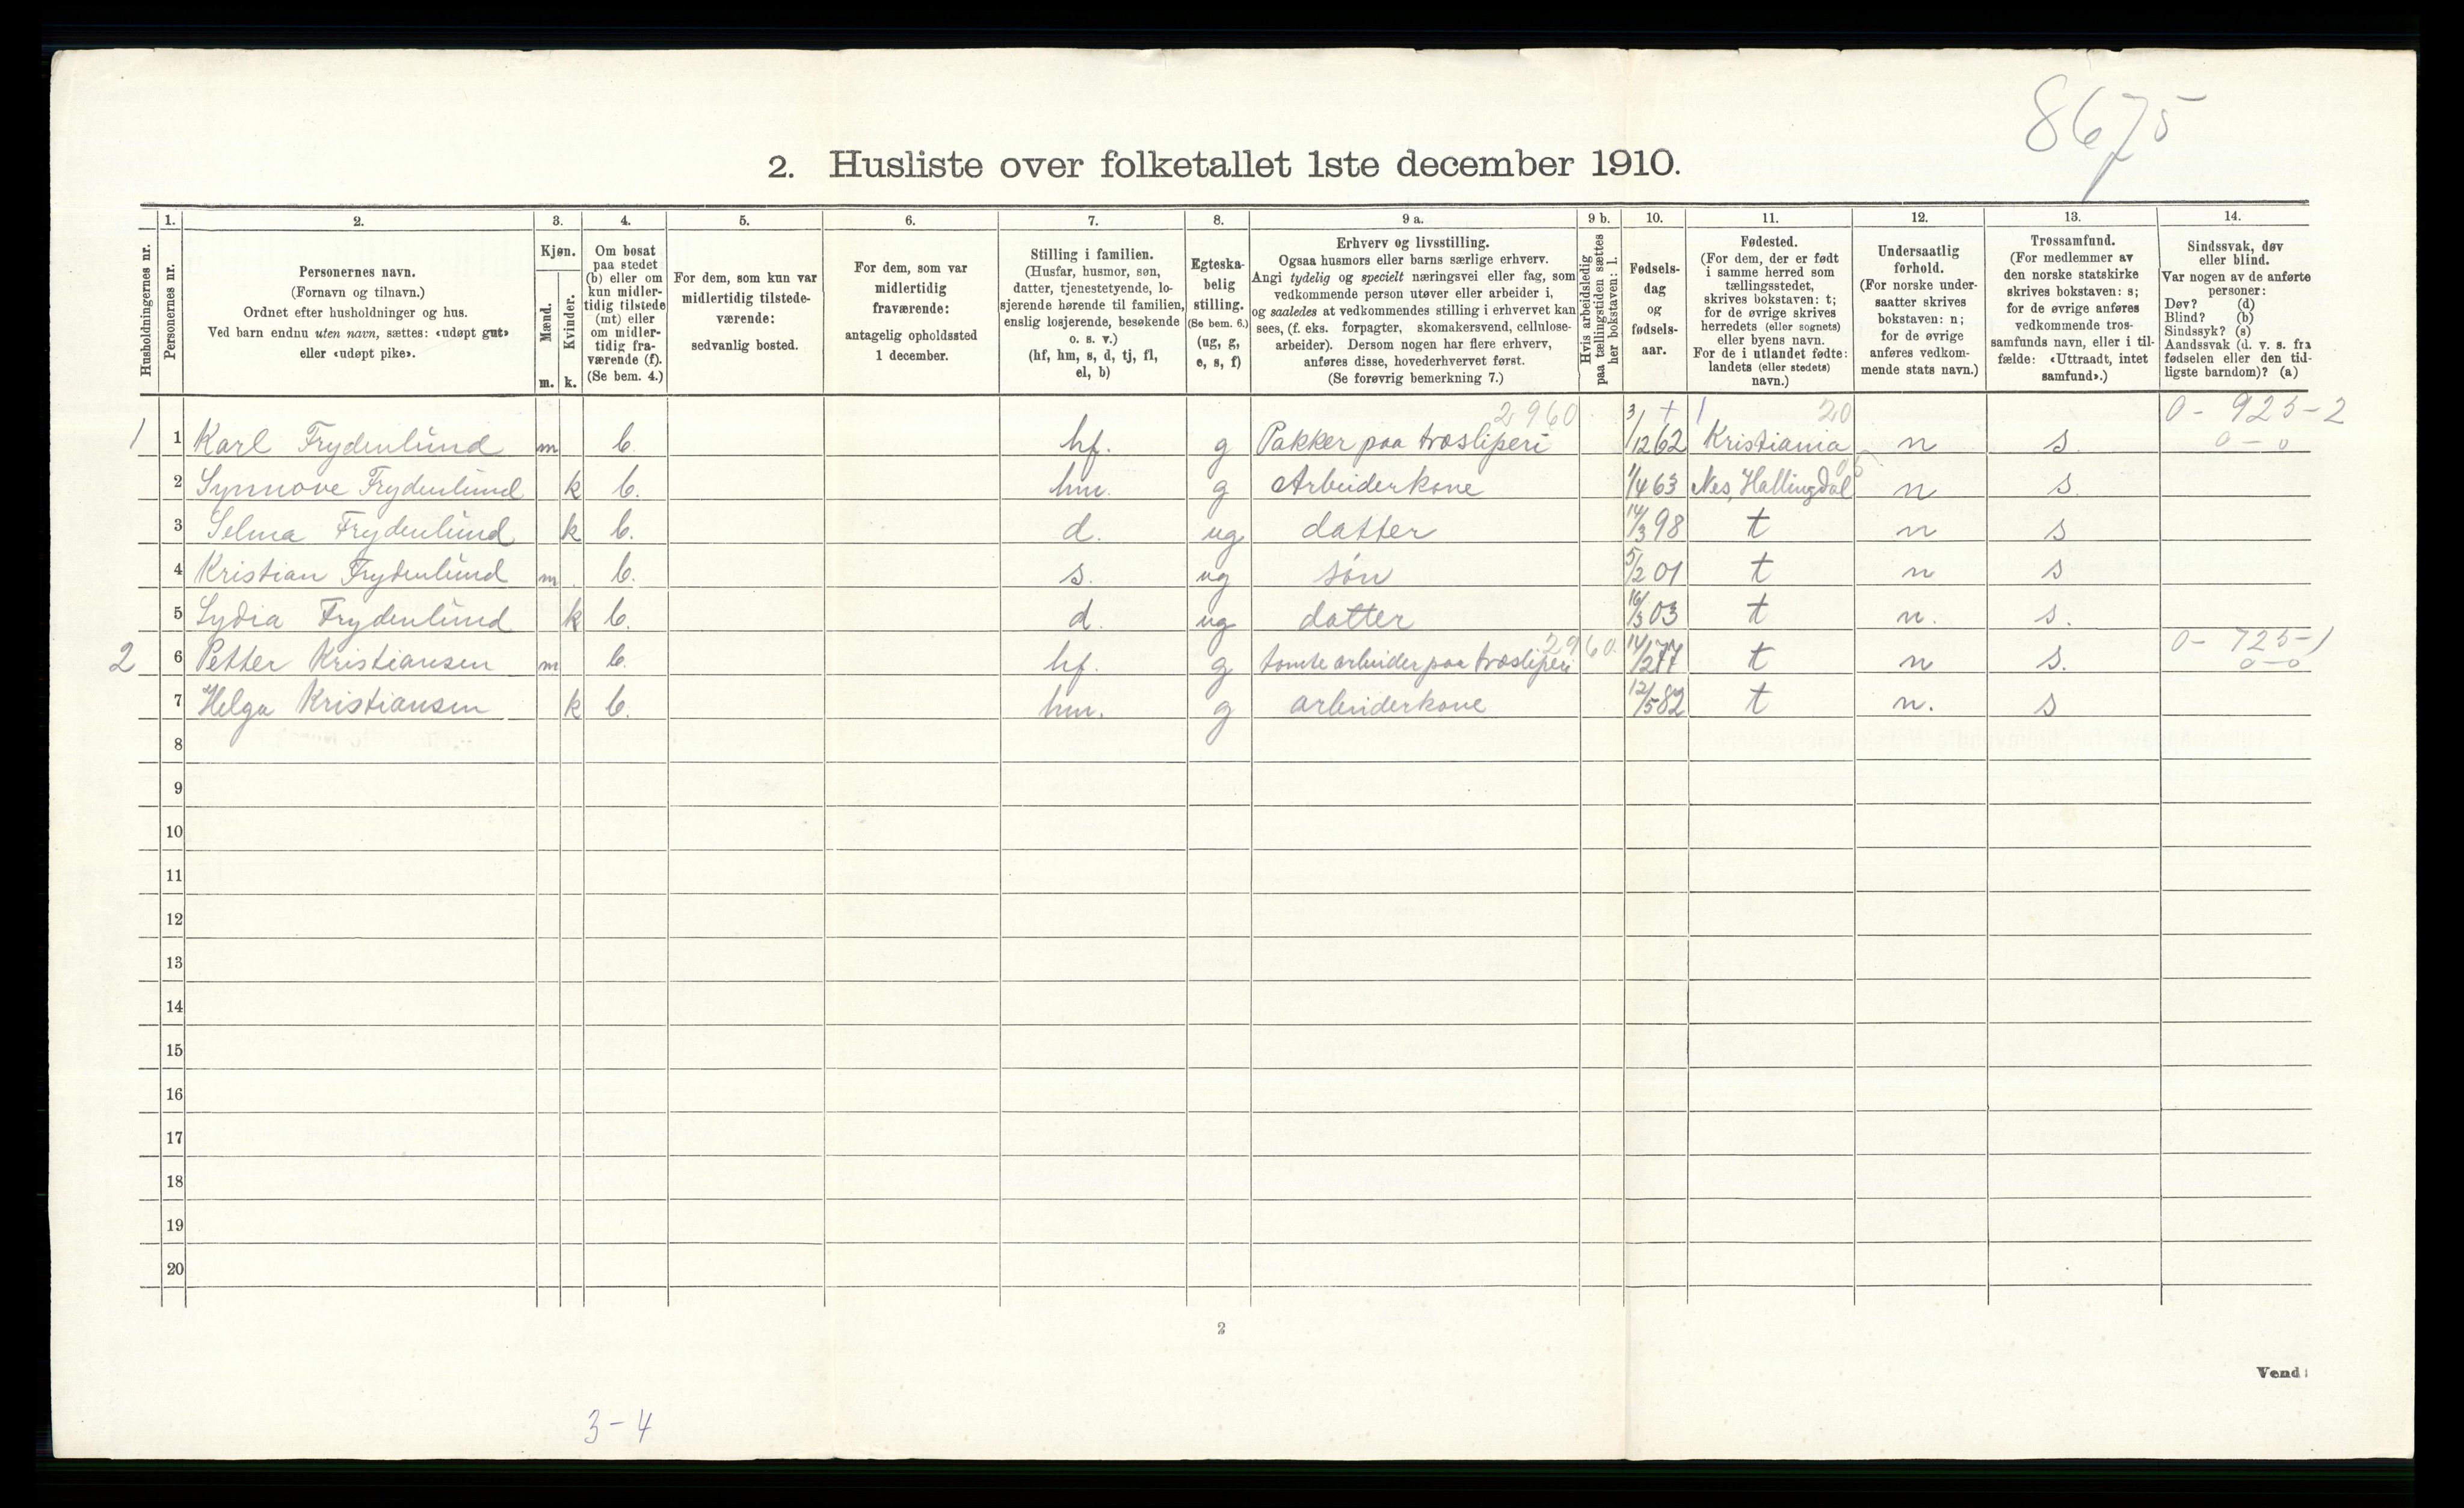 8675
2. Husliste over folketallet 1ste december 1910.
1. 2. 3. 4. 5. 6. 7. 8. 9 a. 9 b. 10. 11. 12. 13. 14.
Husholdningernes nr.
Personernes nr.
Personernes navn.
(Fornavn og tilnavn.)
Ordnet efter husholdninger og hus.
Ved barn endnu uten navn, sættes: «udøpt gut»
eller «udøpt pike».
Kjøn.
Mænd.
m.
Kvinder.
k.
Om bosat
paa stedet
(b) eller om
kun midler-
tidig tilstede
(mt) eller
om midler-
tidig fra-
værende (f).
(Se bem. 4.)
For dem, som kun var
midlertidig tilstede-
værende:
sedvanlig bosted.
For dem, som var
midlertidig
fraværende:
antagelig opholdssted
1 december.
Stilling i familien.
(Husfar, husmor, søn,
datter, tjenestetyende, lo-
sjerende hørende til familien,
enslig losjerende, besøkende
o. s. v.)
(hf, hm, s, d, tj, fl,
el, b)
Egteska-
belig
stilling.
(Se bem. 6.)
(ug, g,
e, s, f)
Erhverv og livsstilling.
Ogsaa husmors eller barns særlige erhverv.
Angi tydelig og specielt næringsvei eller fag, som
vedkommende person utøver eller arbeider i,
og saaledes at vedkommendes stilling i erhvervet kan
sees, (f. eks. forpagter, skomakersvend, cellulose-
arbeider). Dersom nogen har flere erhverv,
anføres disse, hovederhvervet først.
(Se forøvrig bemerkning 7.)
Hvis arbeidsledig
paa tællingstiden sættes
her bokstaven: l.
Fødsels-
dag
og
fødsels-
aar.
Fødested.
(For dem, der er født
i samme herred som
tællingsstedet,
skrives bokstaven: t;
for de øvrige skrives
herredets (eller sognets)
eller byens navn.
For de i utlandet fødte:
landets (eller stedets)
navn.)
Undersaatlig
forhold.
(For norske under-
saatter skrives
bokstaven: n;
for de øvrige
anføres vedkom-
mende stats navn.)
Trossamfund.
(For medlemmer av
den norske statskirke
skrives bokstaven: s;
for de øvrige anføres
vedkommende tros-
samfunds navn, eller i til-
fælde: «Uttraadt, intet
samfund».)
Sindssvak, døv
eller blind.
Var nogen av de anførte
personer:
Døv? (d)
Blind? (b)
Sindssyk? (s)
Aandssvak (d. v. s. fra
fødselen eller den tid-
ligste barndom)? (a)
2960 20 0 - 925 - 2
1 1 Karl Frydenlund m b. hf. g Pakker paa træsliperi 3/12 62 Kristiania n s. 0 - 0
2 Synnove Frydenlund k b. hm. g Arbeiderkone 1/4 63 Nes, Hallingdal n s.
3 Selma Frydenlund k b. d. ug datter 14/3 98 t n s
4 Kristian Frydenlund m b. s. ug søn 5/2 01 t n s
5 Lydia Frydenlund k b. d. ug datter 16/3 03 t n. s.
2960. 0 - 725 - 1
2 6 Petter Kristiansen m b. hf. g tomte arbeider paa træsliperi 14/12 77 t n s. 0 - 0
7 Helga Kristiansen k b. hm. g arbeiderkone 12/5 82 t n. s
8
9
10
11
12
13
14
15
16
17
18
19
20
2
Vend!
3 - 4